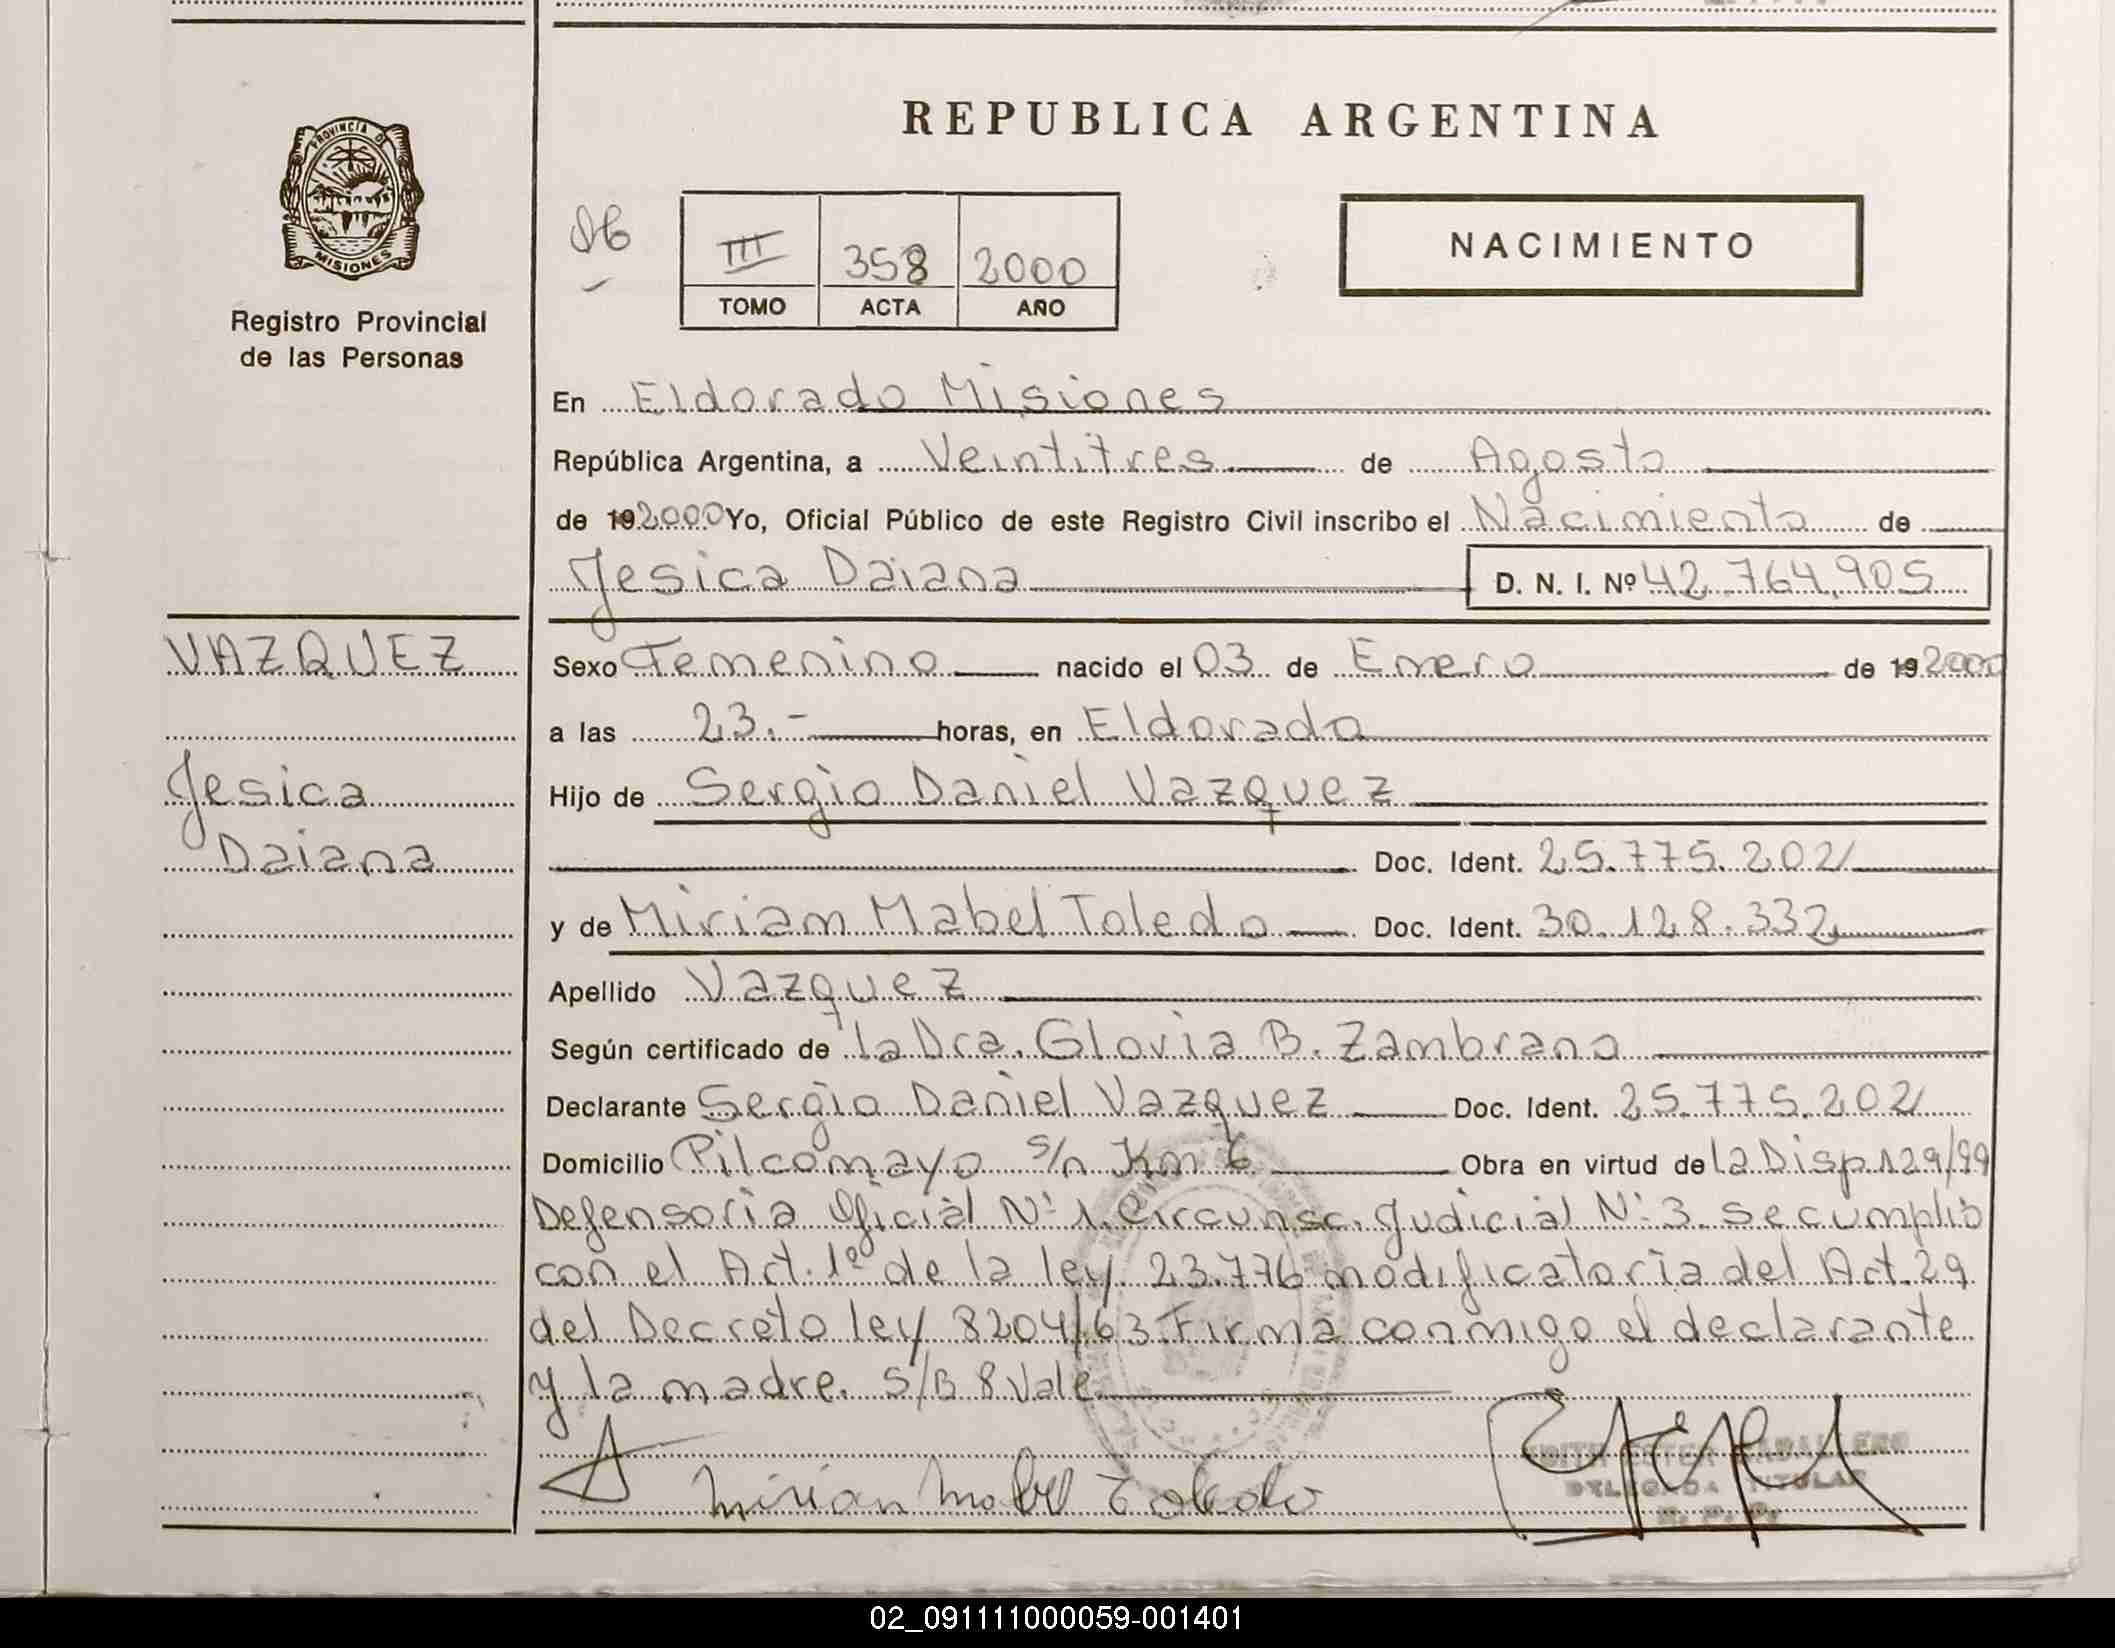 PROVINCIA DE
MISIONES
Registro Provincial
de las Personas
VAZQUEZ
Jesica
Daiana
REPUBLICA ARGENTINA
III 358 2000
TOMO ACTA AÑO
NACIMIENTO
En Eldorado Misiones
República Argentina, a Veintitres de Agosto
de 19 2000 Yo, Oficial Público de este Registro Civil inscribo el Nacimiento de
Jesica Daiana D. N. I. Nº 42.764.905
Sexo Femenino nacido el 03 de Enero de 19 2000
a las 23.- horas, en Eldorado
Hijo de Sergio Daniel Vazquez
Doc. Ident. 25.775.202
y de Miriam Mabel Toledo Doc. Ident. 30.128.332
Apellido Vazquez
Según certificado de la Dra. Gloria B. Zambrano
Declarante Sergio Daniel Vazquez Doc. Ident. 25.775.202
Domicilio Pilcomayo s/n Km 6 Obra en virtud de la Disp 129/99
Defensoria Oficial Nº 1. Circunsc. Judicial Nº 3. se cumplió
con el Art. 1º de la ley 23.776 modificatoria del Art. 29
del Decreto ley 8204/63 Firma conmigo el declarante
y la madre. S/B 8 Vale
Mirian Mabel Toledo
DELEGADA TITULAR
02_091111000059-001401